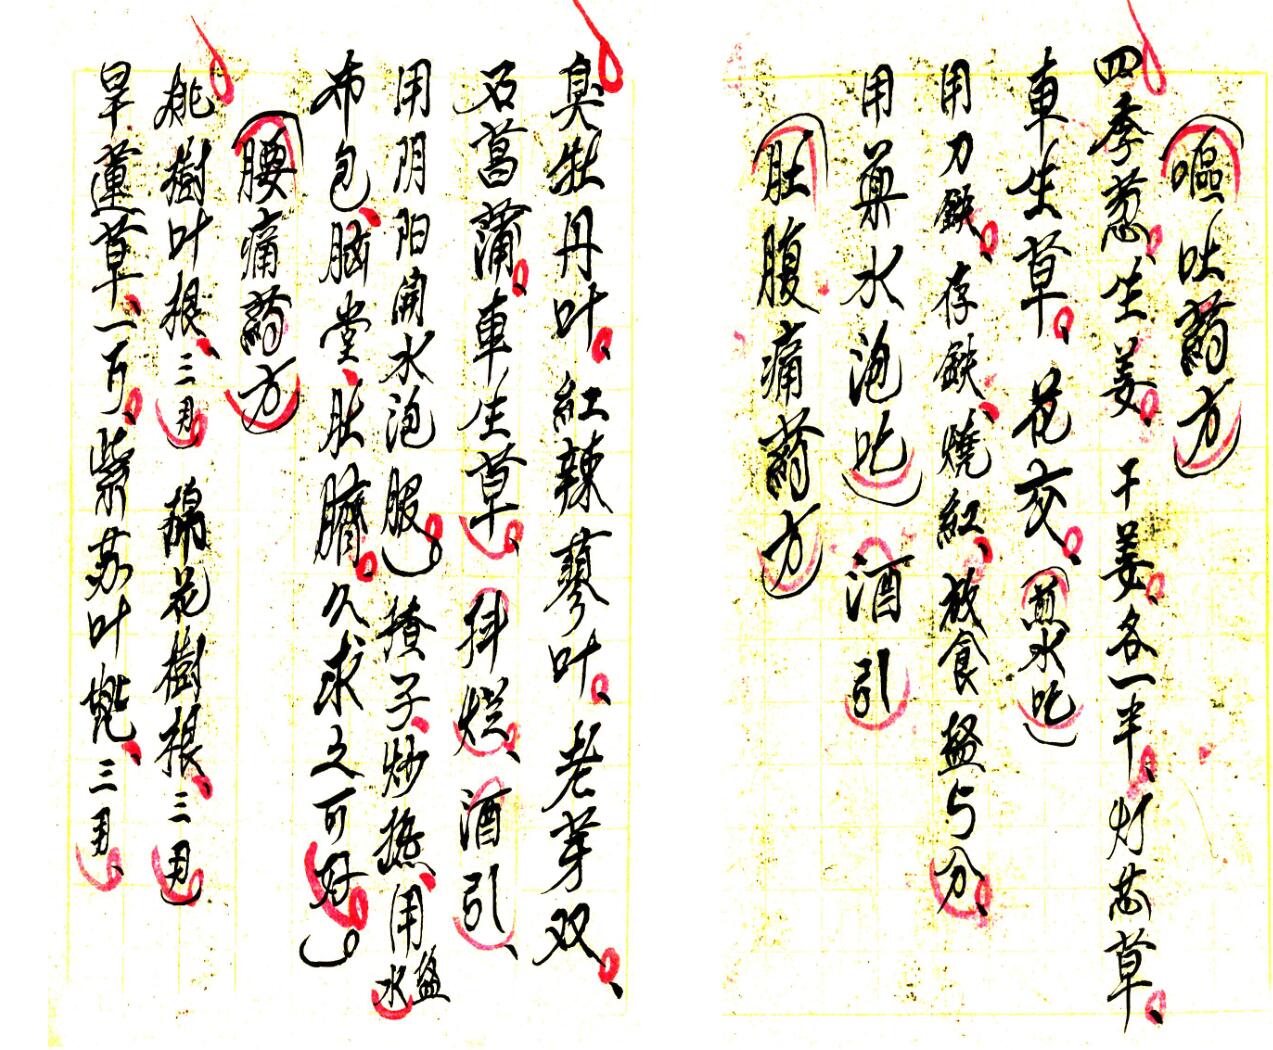 嘔吐药方
四季葱、生姜、干姜各一半、灯芯草、
車生草、花交、煎水吃
用刀鉄、存鉄、燒紅、放食盬少分、
用藥水泡吃 酒引
肚腹痛药方
臭牡丹叶、紅辣蓼叶、老芽双、
石菖蒲、車生草、抖烂、酒引、
用阴阳開水泡服 揸子、炒熱、用盬水
布包、脑堂、肚臍、久求之可好
腰痛药方
桃樹叶根、三月 棉花樹根、三月
旱蓮草、一可、紫苏叶蔸、三月、